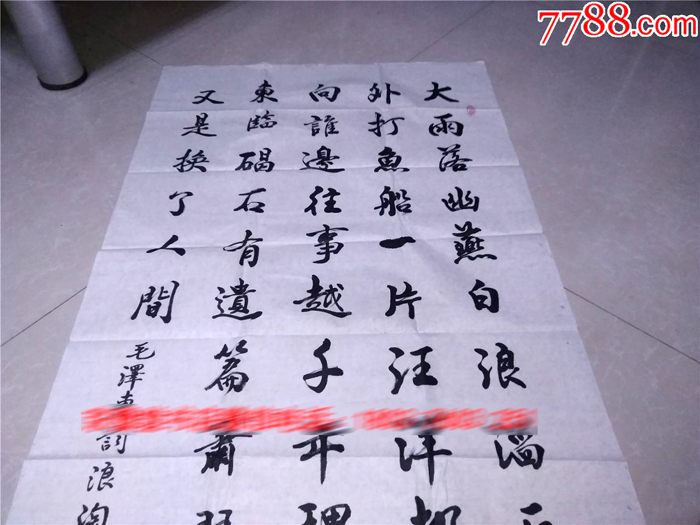 7788.com
大雨落幽燕白浪滔
外打魚船一片汪洋都
向誰邊往事越千年
東臨碣石有遺篇蕭
又是換了人間
毛澤東詞浪淘